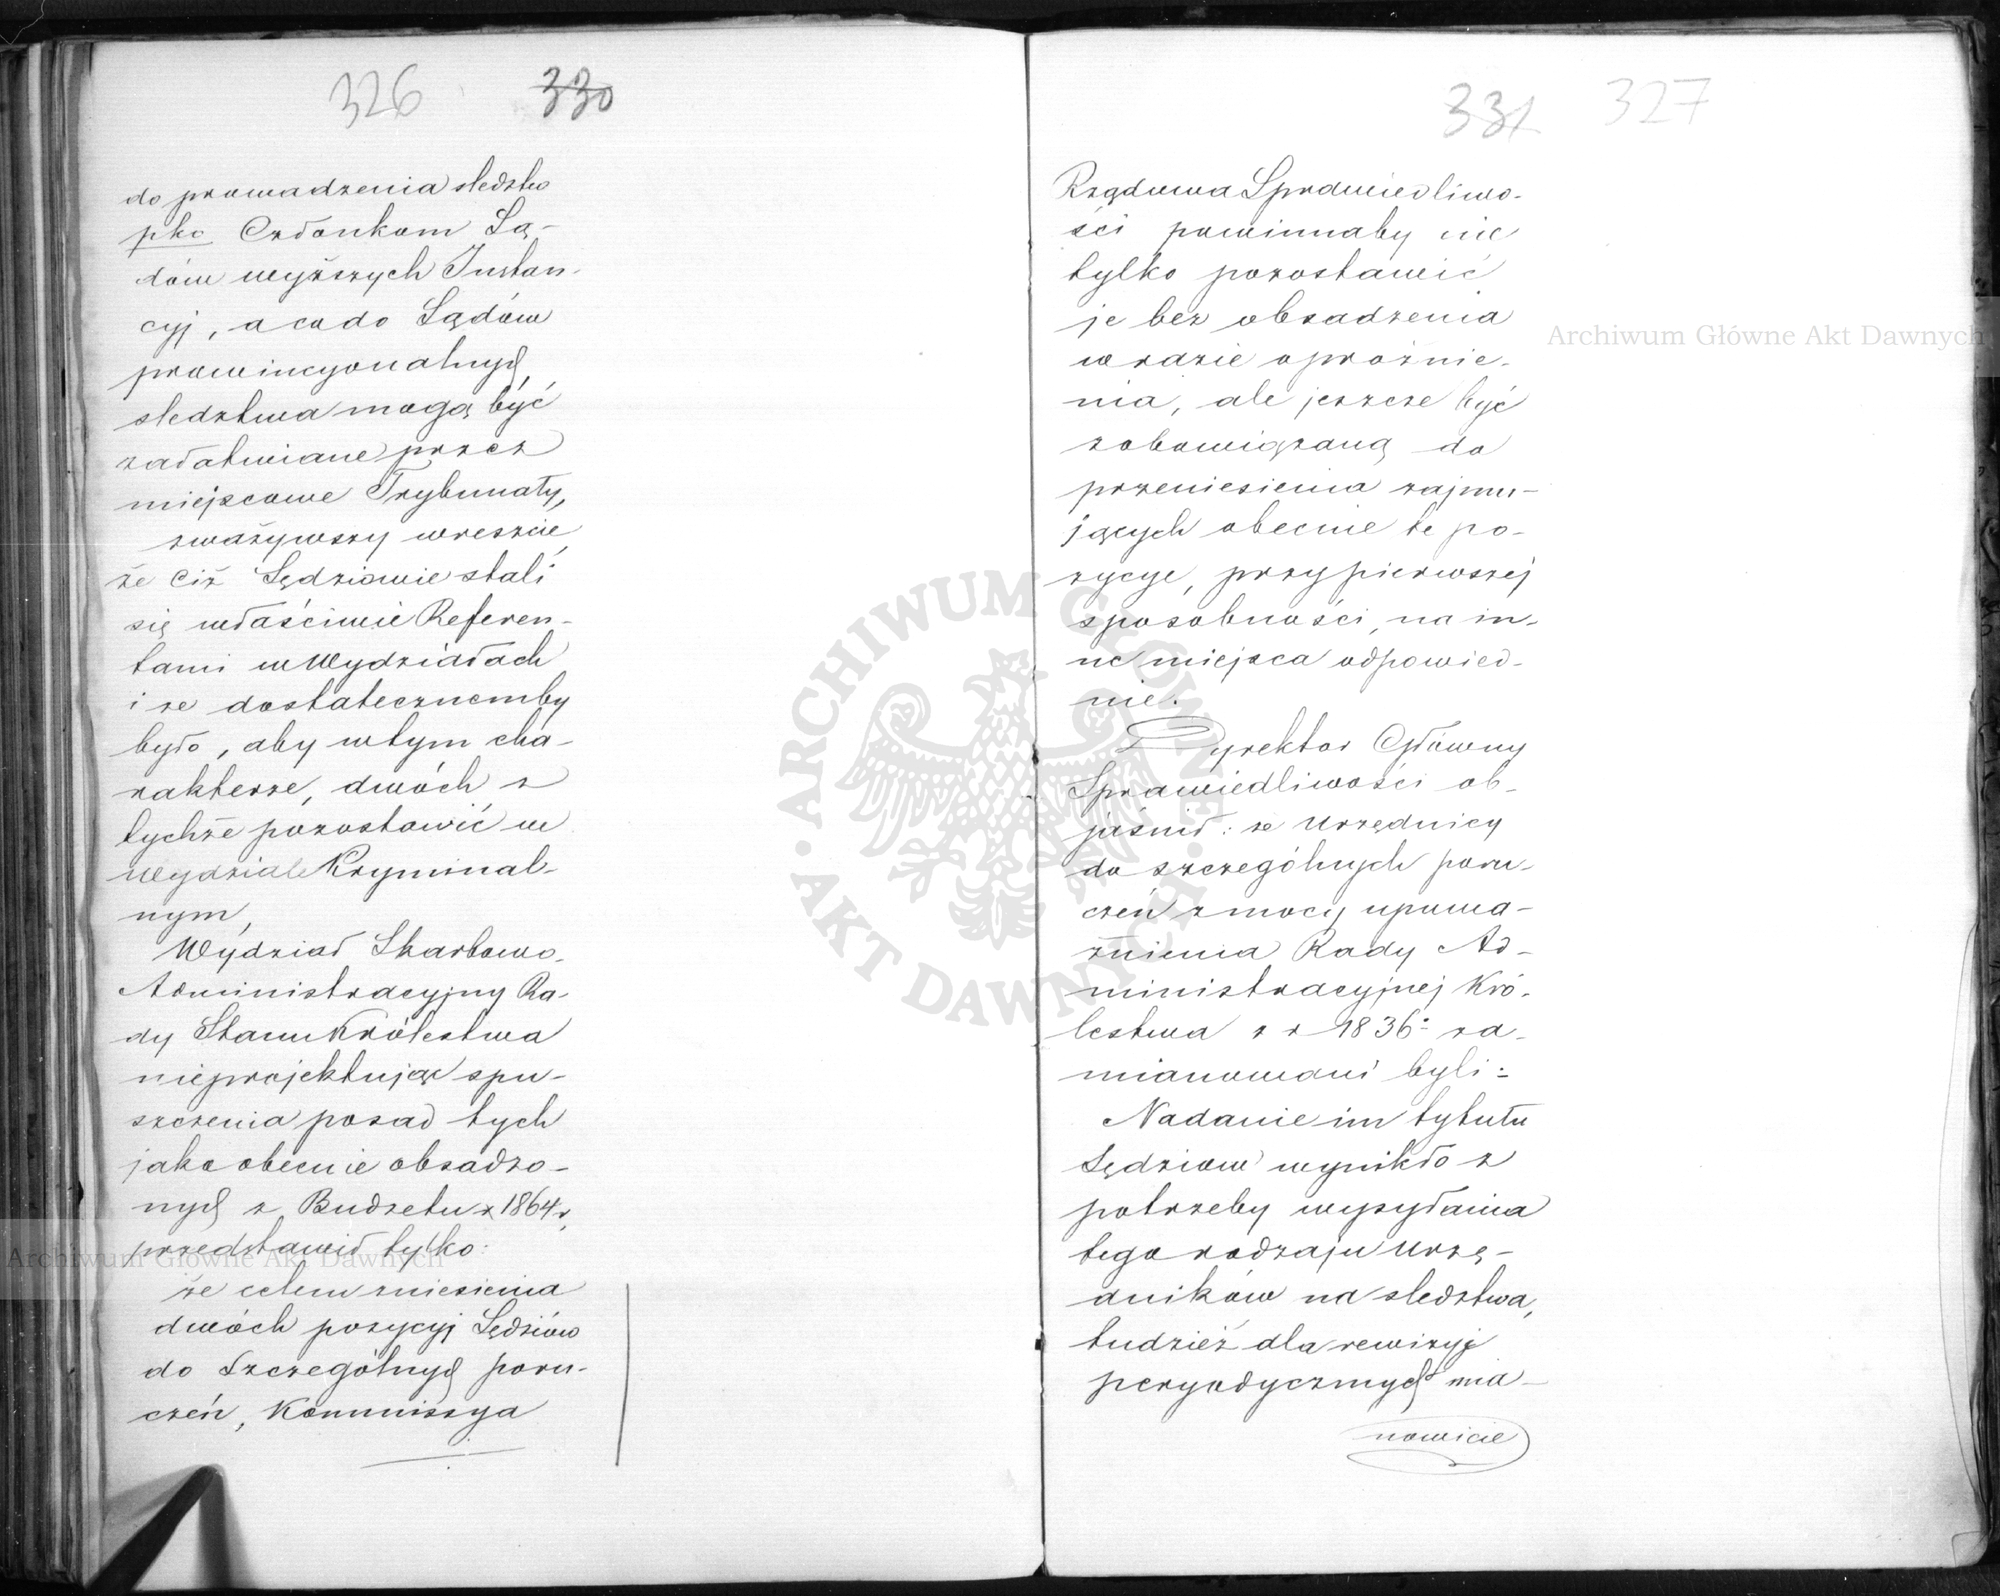 326 330
do prowadzenia sledztw
pko Członkom Są-
dów wyższych Instan-
cyj, a co do Sądów
prowincyonalnych,
sledztwa mogą być
załatwiane przez
miejscowe Trybunały,
zważywszy wreszcie,
że Ciż Sędziowie stali
się właściwie Referen-
tami w Wydziałach
i że dostatecznemby
było, aby w tym cha-
rakterze, dwóch z
tychże pozostawić w
Wydziale Kryminal-
nym,
Wydział Skarbowo-
Administracyjny Ra-
dy Stanu Królestwa
nieprojektując spu-
szczenia posad tych
jako obecnie obsadzo-
nych z Budżetu z 1864 r,
przedstawił tylko:
że celem zniesienia
dwóch pozycyj Sędziów
do Szczególnych poru-
czeń, Kommissya
331 327
Rządowa Sprawiedliwo-
ści powinnaby nie
tylko pozostawić
je bez obsadzenia
w razie opróżnie-
nia, ale jeszcze być
zobowiązaną do
przeniesienia zajmu-
jących obecnie te po-
zycye, przy pierwszej
sposobności, na in-
ne miejsca odpowied-
nie.
Dyrektor Główny
Sprawiedliwości ob-
jaśnił: że Urzędnicy
do szczególnych poru-
czeń z mocy upowa-
żnienia Rady Ad-
ministracyjnej Kró-
lestwa z r 1836: za-
mianowani byli:
Nadanie im tytułu
Sędziów wynikło z
potrzeby wysyłania
tego rodzaju Urzę-
dników na sledztwa,
tudzież dla rewizyj
peryodycznych mia-
nowicie
ARCHIWUM GŁÓWNE
AKT DAWNYCH
Archiwum Główne Akt Dawnych
Archiwum Główne Akt Dawnych